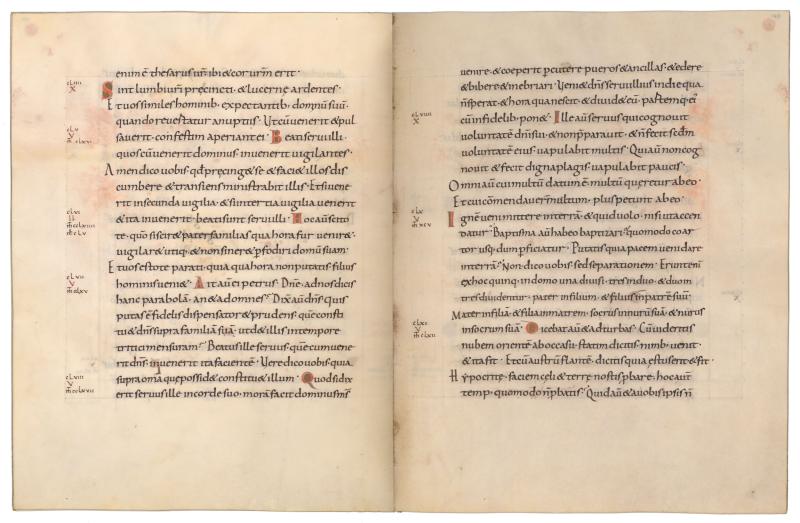 enim ē thesarus ur̄ ibi & cor ur̄m erit·
Sint lumbi ur̄i precincti· & lucerne ardentes·
Et uos similes hominib; expectantib; domnū suū·
quando reuertatur a nuptiis· Ut cū uenerit & pul
sauerit· confestim aperiant ei· Beati serui illi·
quos cū uenerit dominus· inuenerit uigilantes·
Amen dico uobis· qd p̄cinget se & faci& illos dis
cumbere· & transiens ministrabit illis· Et si uene
rit in secunda uigilia· & si in tertia uigilia uenerit
& ita inuenerit· beati sunt serui illi· Hoc aū scito
te· quō si scir& pater familias qua hora fur uenir&·
uigilar& utiq; & non siner& p̄fodiri domū suam·
Et uos estote parati· quia qua hora non putatis· filius
hominis ueni&· Ait aū ei petrus· Dn̄e· ad nos dicis
hanc parabolā· an & ad omnes· Dix̄ aū dn̄s· quis
putas ē fidelis dispensator & prudens· quē consti
tu& dn̄s supra familiā suā· ut d& illis in tempore
tritici mensuram· Beatus ille seruus· quē cum uene
rit dn̄s· inuenerit ita facientē· Uere dico uobis· quia
supra om̄a que possid& constitu& illum· Quod si dix
erit seruus ille in corde suo· moram facit dominus m̄s
cLiiii
X
cLv
V
cLvi
cLvii
V
m̄ ccLxv
cLviii
V
m̄ ccLxvii
uenire· & coeperit p̄cutere pueros & ancillas· & edere
& bibere & inebriari· Ueni& dn̄s serui illius in die qua
n̄ sperat· & hora qua nescit· & diuid& eū· partemq; ei'
cū infidelib; pon&· Ille aū seruus qui cognouit
uoluntatē dn̄i sui· & non p̄parauit· & n̄ fecit scdm
uoluntatē eius· uapulabit multis· Qui aū non cog
nouit & fecit digna plagis· uapulabit paucis·
Omni aū cui multū datum ē· multū queretur ab eo·
Et cui comendauer̄ multum· plus petunt ab eo·
Ignē ueni mittere in terrā· & quid uolo· nisi ut accen
datur· Baptisma aū habeo baptizari· & quomodo coar
tor usq; dum p̄ficiatur· Putatis quia pacem ueni dare
in terrā· Non· dico uobis· sed separationem· Erunt eni
ex hoc quinq; in domo una diuisi· tres in duo· & duo in
tres diuidentur· pater in filium· & filius in patrē suū·
Mater in filiā· & filia in matrem· socrus in nurū suā· & nurus
in socrum suā· Dicebat aū & ad turbas· Cū uideritis
nubem orientē ab occasu· statim dicitis· nimb; uenit·
& ita fit· Et cū austrū flantē· dicitis quia estus erit· & fit·
Hypocrite· faciem celi & terre nostis p̄bare· hoc aūt
temp; quomodo n̄ p̄batis· Quid aū & a uobis ipsis n̄
cLviiii
X
cLx
V
m̄ xcv
cLxi
V
m̄ cLxii